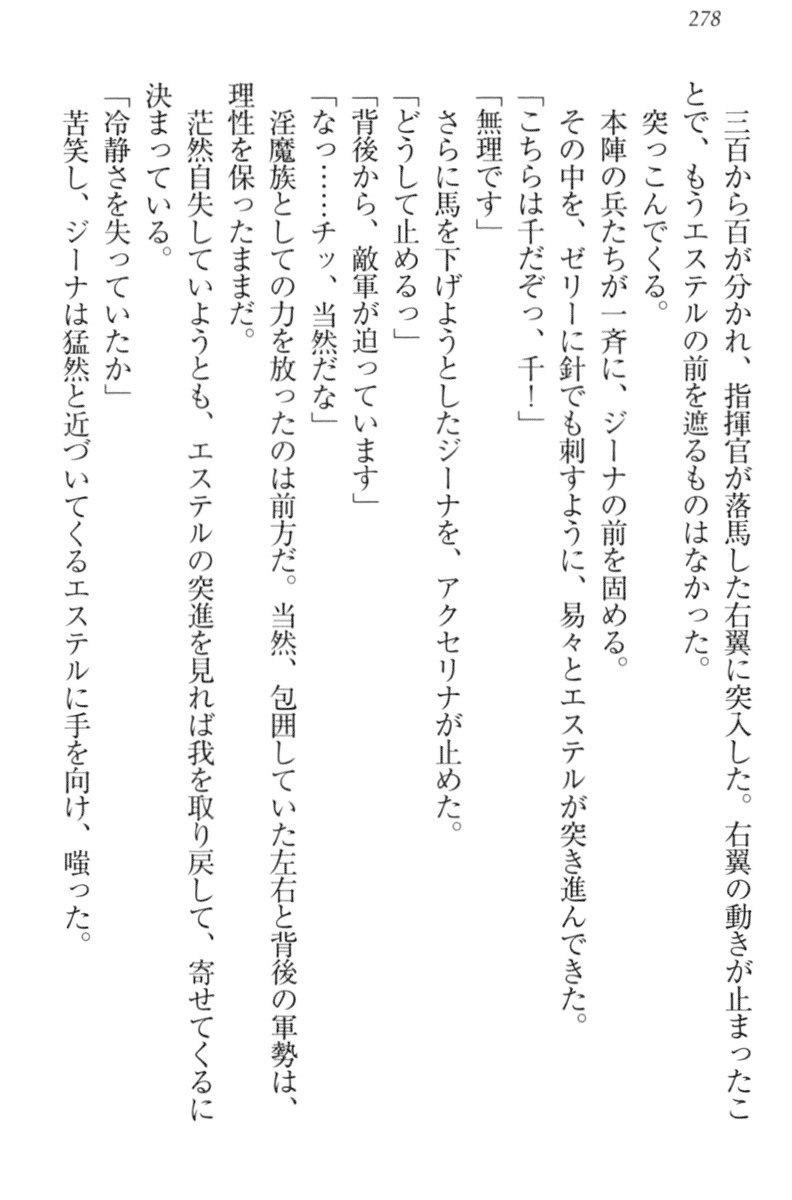 278
三百から百が分かれ、指揮官が落馬した右翼に突入した。右翼の動きが止まったこ
とで、もうエステルの前を遮るものはなかった。
突っこんでくる。
本陣の兵たちが一斉に、ジーナの前を固める。
その中を、ゼリーに針でも刺すように、易々とエステルが突き進んできた。
「こちらは千だぞっ、千！」
「無理です」
さらに馬を下げようとしたジーナを、アクセリナが止めた。
「どうして止めるっ」
「背後から、敵軍が迫っています」
「なっ……チッ、当然だな」
淫魔族としての力を放ったのは前方だ。当然、包囲していた左右と背後の軍勢は、
理性を保ったままだ。
茫然自失していようとも、エステルの突進を見れば我を取り戻して、寄せてくるに
決まっている。
「冷静さを失っていたか」
苦笑し、ジーナは猛然と近づいてくるエステルに手を向け、嗤った。